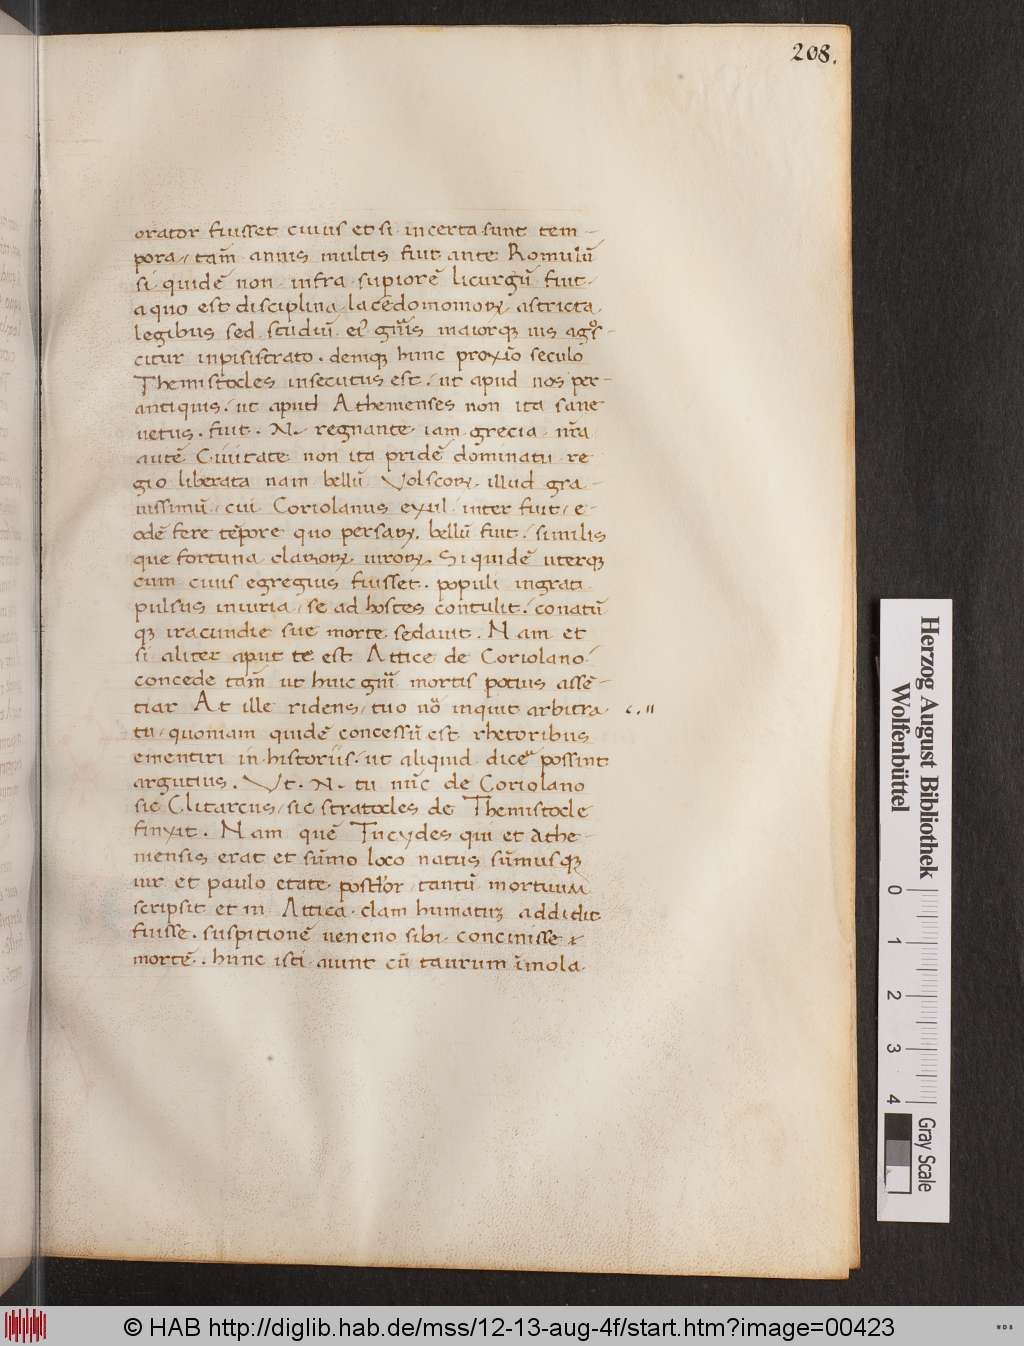 208.
orator fuisset cuius et si incerta sunt tem-
pora, tam̃ annis multis fuit ante Romulũ
si quidẽ non infra supiorẽ licurgũ fuit
a quo est disciplina lacedomomorꝝ astricta
legibus sed studiũ ei᷒ gñis maiorqꝫ uis
citur inpisistrato. deniqꝫ hunc proxiõ seculo
Themistocles insecutus est, ut apud nos per-
antiquis, ut aput Athenienses non ita sane
uetus. fuit. N. regnante iam grecia nr̃a
autẽ Ciuitate non ita pridẽ dominatu re
gio liberata nam bellũ Volscorꝝ illud gra-
uissimũ, cui Coriolanus exul inter fuit, e-
odẽ fere tẽpore quo persarꝝ bellũ fuit, similis
que fortuna clarorꝝ uirorꝝ. Si quidẽ uterqꝫ
cum ciuis egregius fuisset. populi ingrati
pulsus iniuria, se ad hostes contulit, conatũ
qꝫ iracundie sue morte sedauit. Nam et
si aliter aput te est Attice de Coriolano
concede tam̃ ut huic gñi mortis potius assẽ-
tiar At ille ridens, tuo uõ inquit arbitra- c. 11
tu, quoniam quidẽ concessũ est rhetoribus
ementiri in historiis, ut aliquid dicẽ possint
argutius. Vt. N. tu nũc de Coriolano
sic Clitarcus, sic stratocles de Themistocle
finxit. Nam quẽ Tucydes qui et Athe-
niensis erat et sũmo loco natus sũmusqꝫ
uir et paulo etate postĩor, tantũ mortuum
scripsit et in Attica clam humatuꝫ addidit
fuisse. suspitionẽ ueneno sibi conciuisse
mortẽ. hunc isti aiunt cũ taurum ĩmola
Herzog August Bibliothek
Wolfenbüttel
0 1 2 3 4
Gray Scale
© HAB http://diglib.hab.de/mss/12-13-aug-4f/start.htm?image=00423